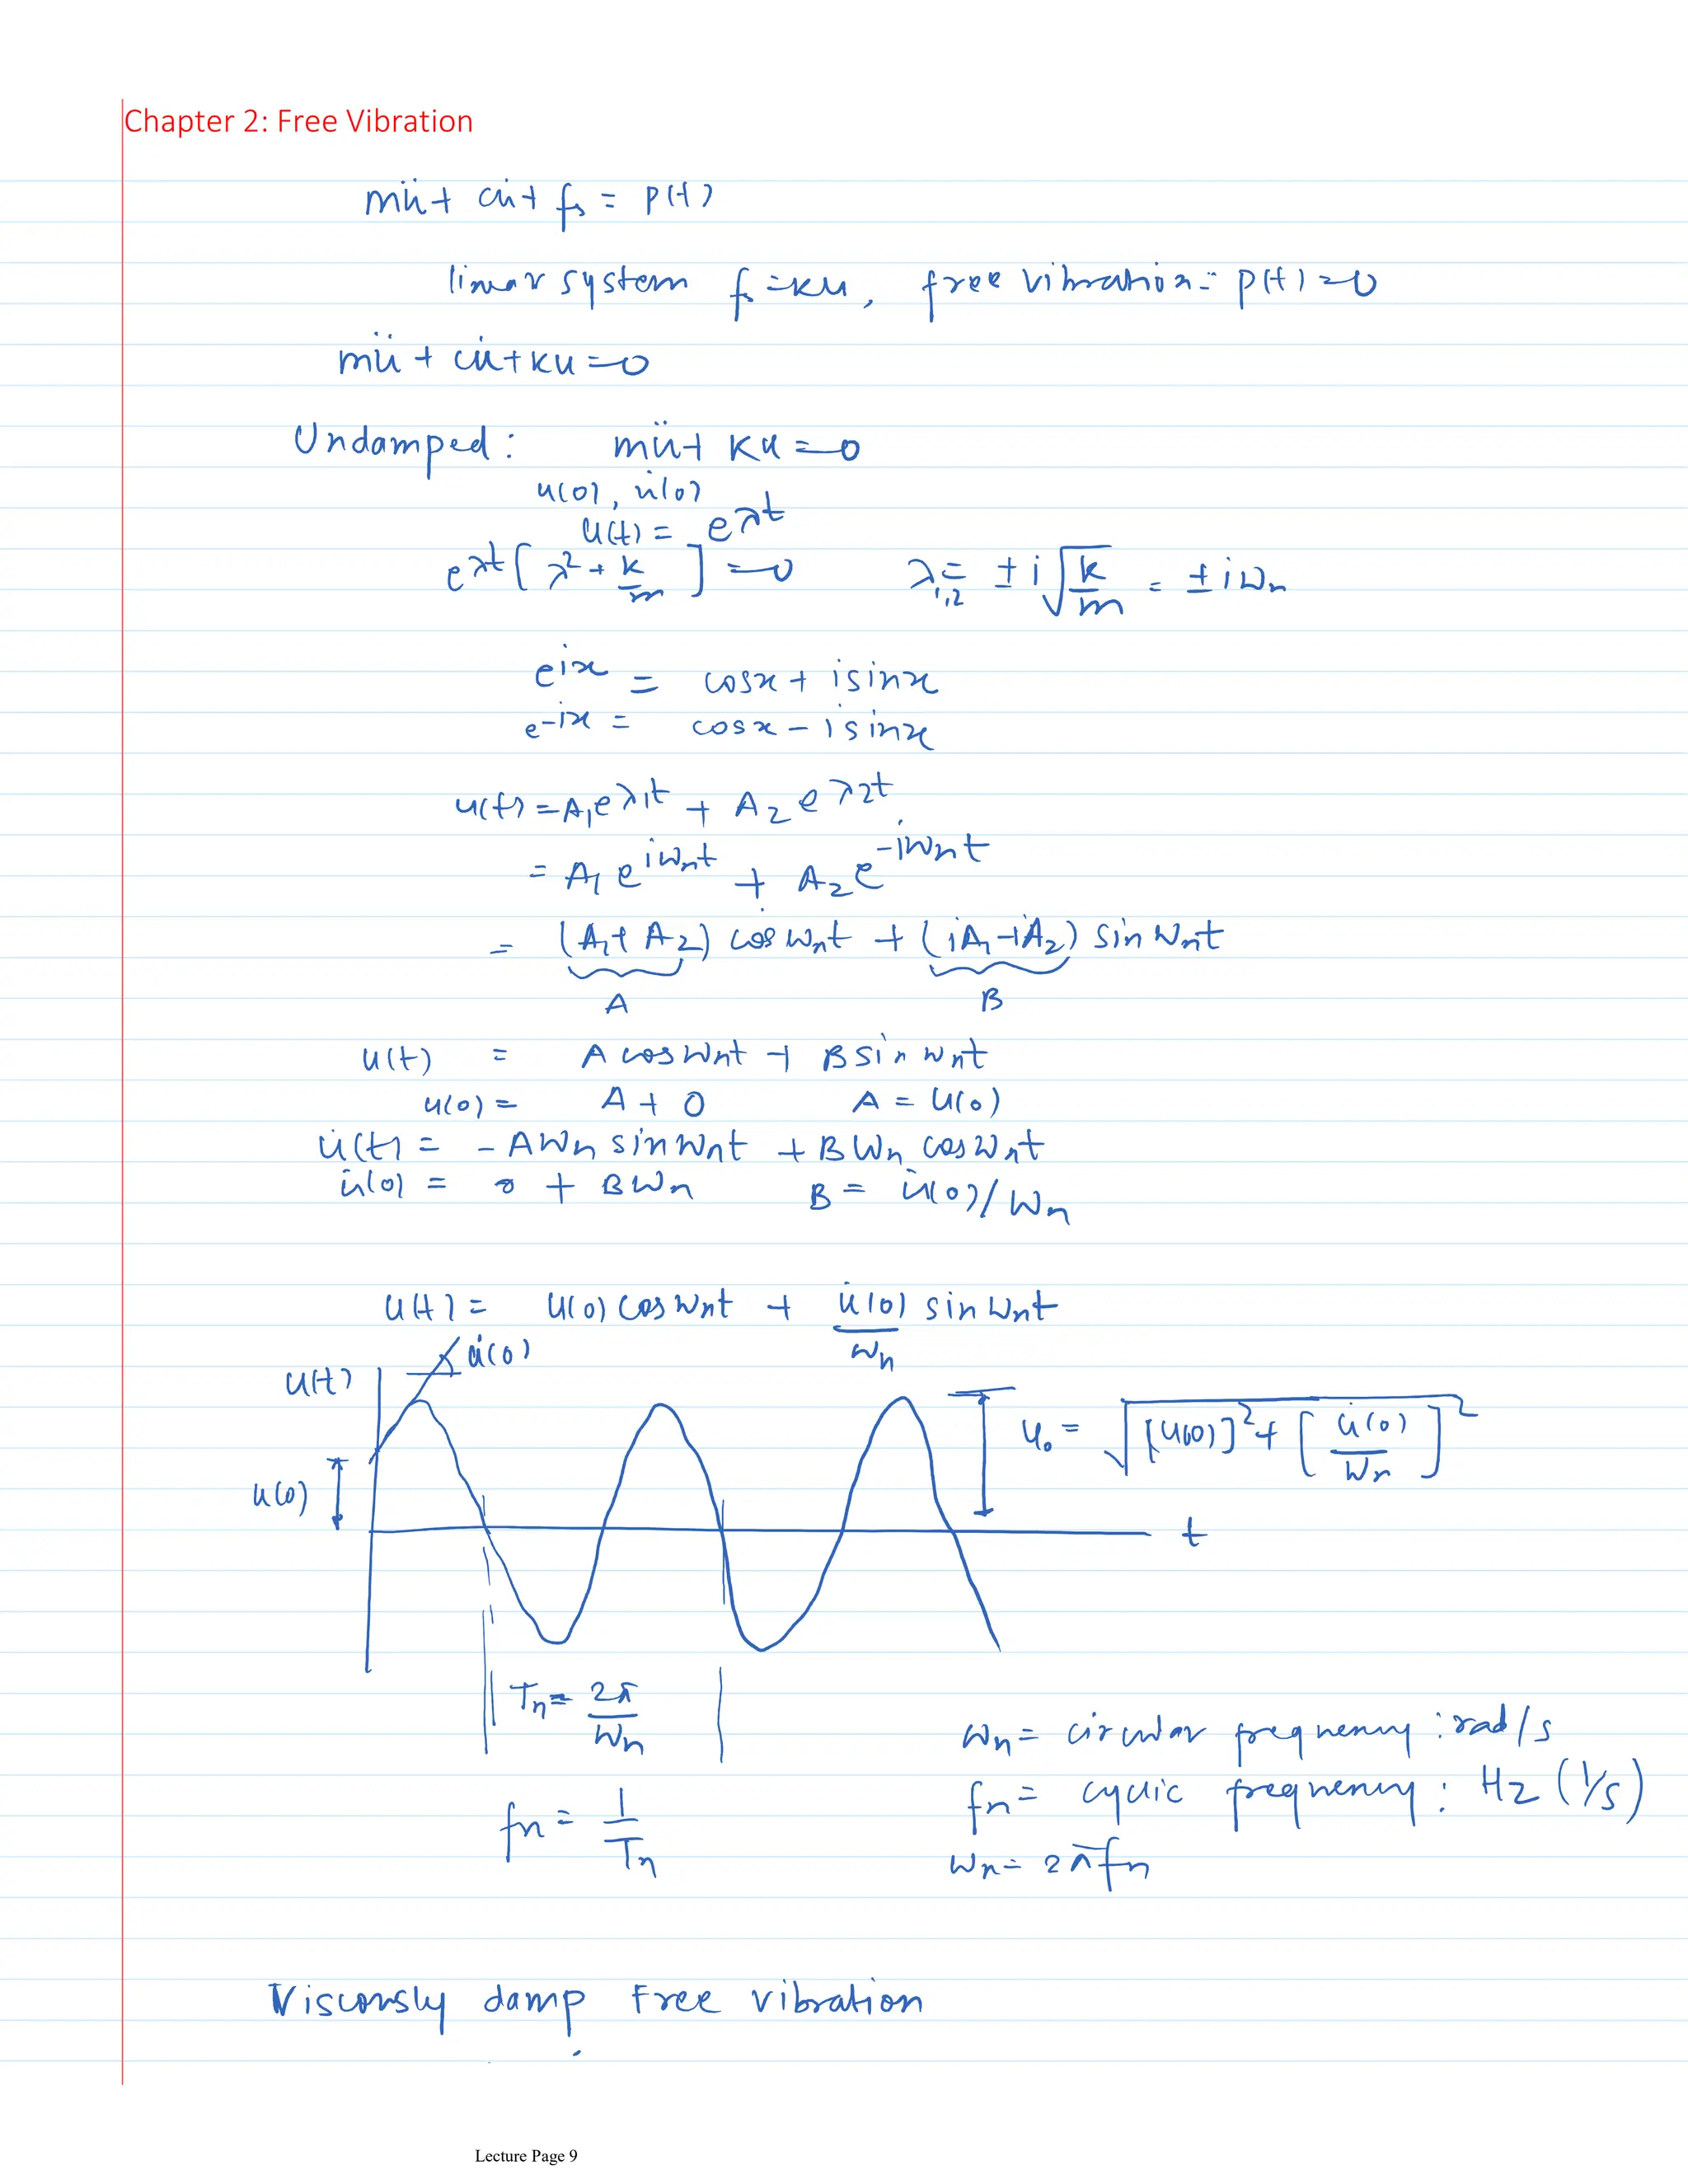 Chapter 2: Free Vibration
mü + cu̇ + fs = p(t)
linear system fs = ku, free vibration = p(t) = 0
mü + cu̇ + ku = 0
Undamped: mü + ku = 0
u(0), u̇(0)
u(t) = e^λt
e^λt [λ² + k/m] = 0 λ1,2 = ± i √(k/m) = ± iωn
e^ix = cosx + isinx
e^-ix = cosx - isinx
u(t) = A1 e^λ1t + A2 e^λ2t
= A1 e^iωnt + A2 e^-iωnt
= (A1 + A2) cos ωnt + (iA1 - iA2) sin ωnt
A B
u(t) = A cos ωnt + B sin ωnt
u(0) = A + 0 A = u(0)
u̇(t) = -Aωn sin ωnt + Bωn cos ωnt
u̇(0) = 0 + Bωn B = u̇(0)/ωn
u(t) = u(0) cos ωnt + u̇(0)/ωn sin ωnt
u̇(0)
u(t)
u0 = √([u(0)]² + [u̇(0)/ωn]²)
u(0)
t
Tn = 2π/ωn
ωn = circular frequency : rad/s
fn = 1/Tn
fn = cyclic frequency : Hz (1/s)
ωn = 2πfn
Viscously damp Free vibration
Lecture Page 9